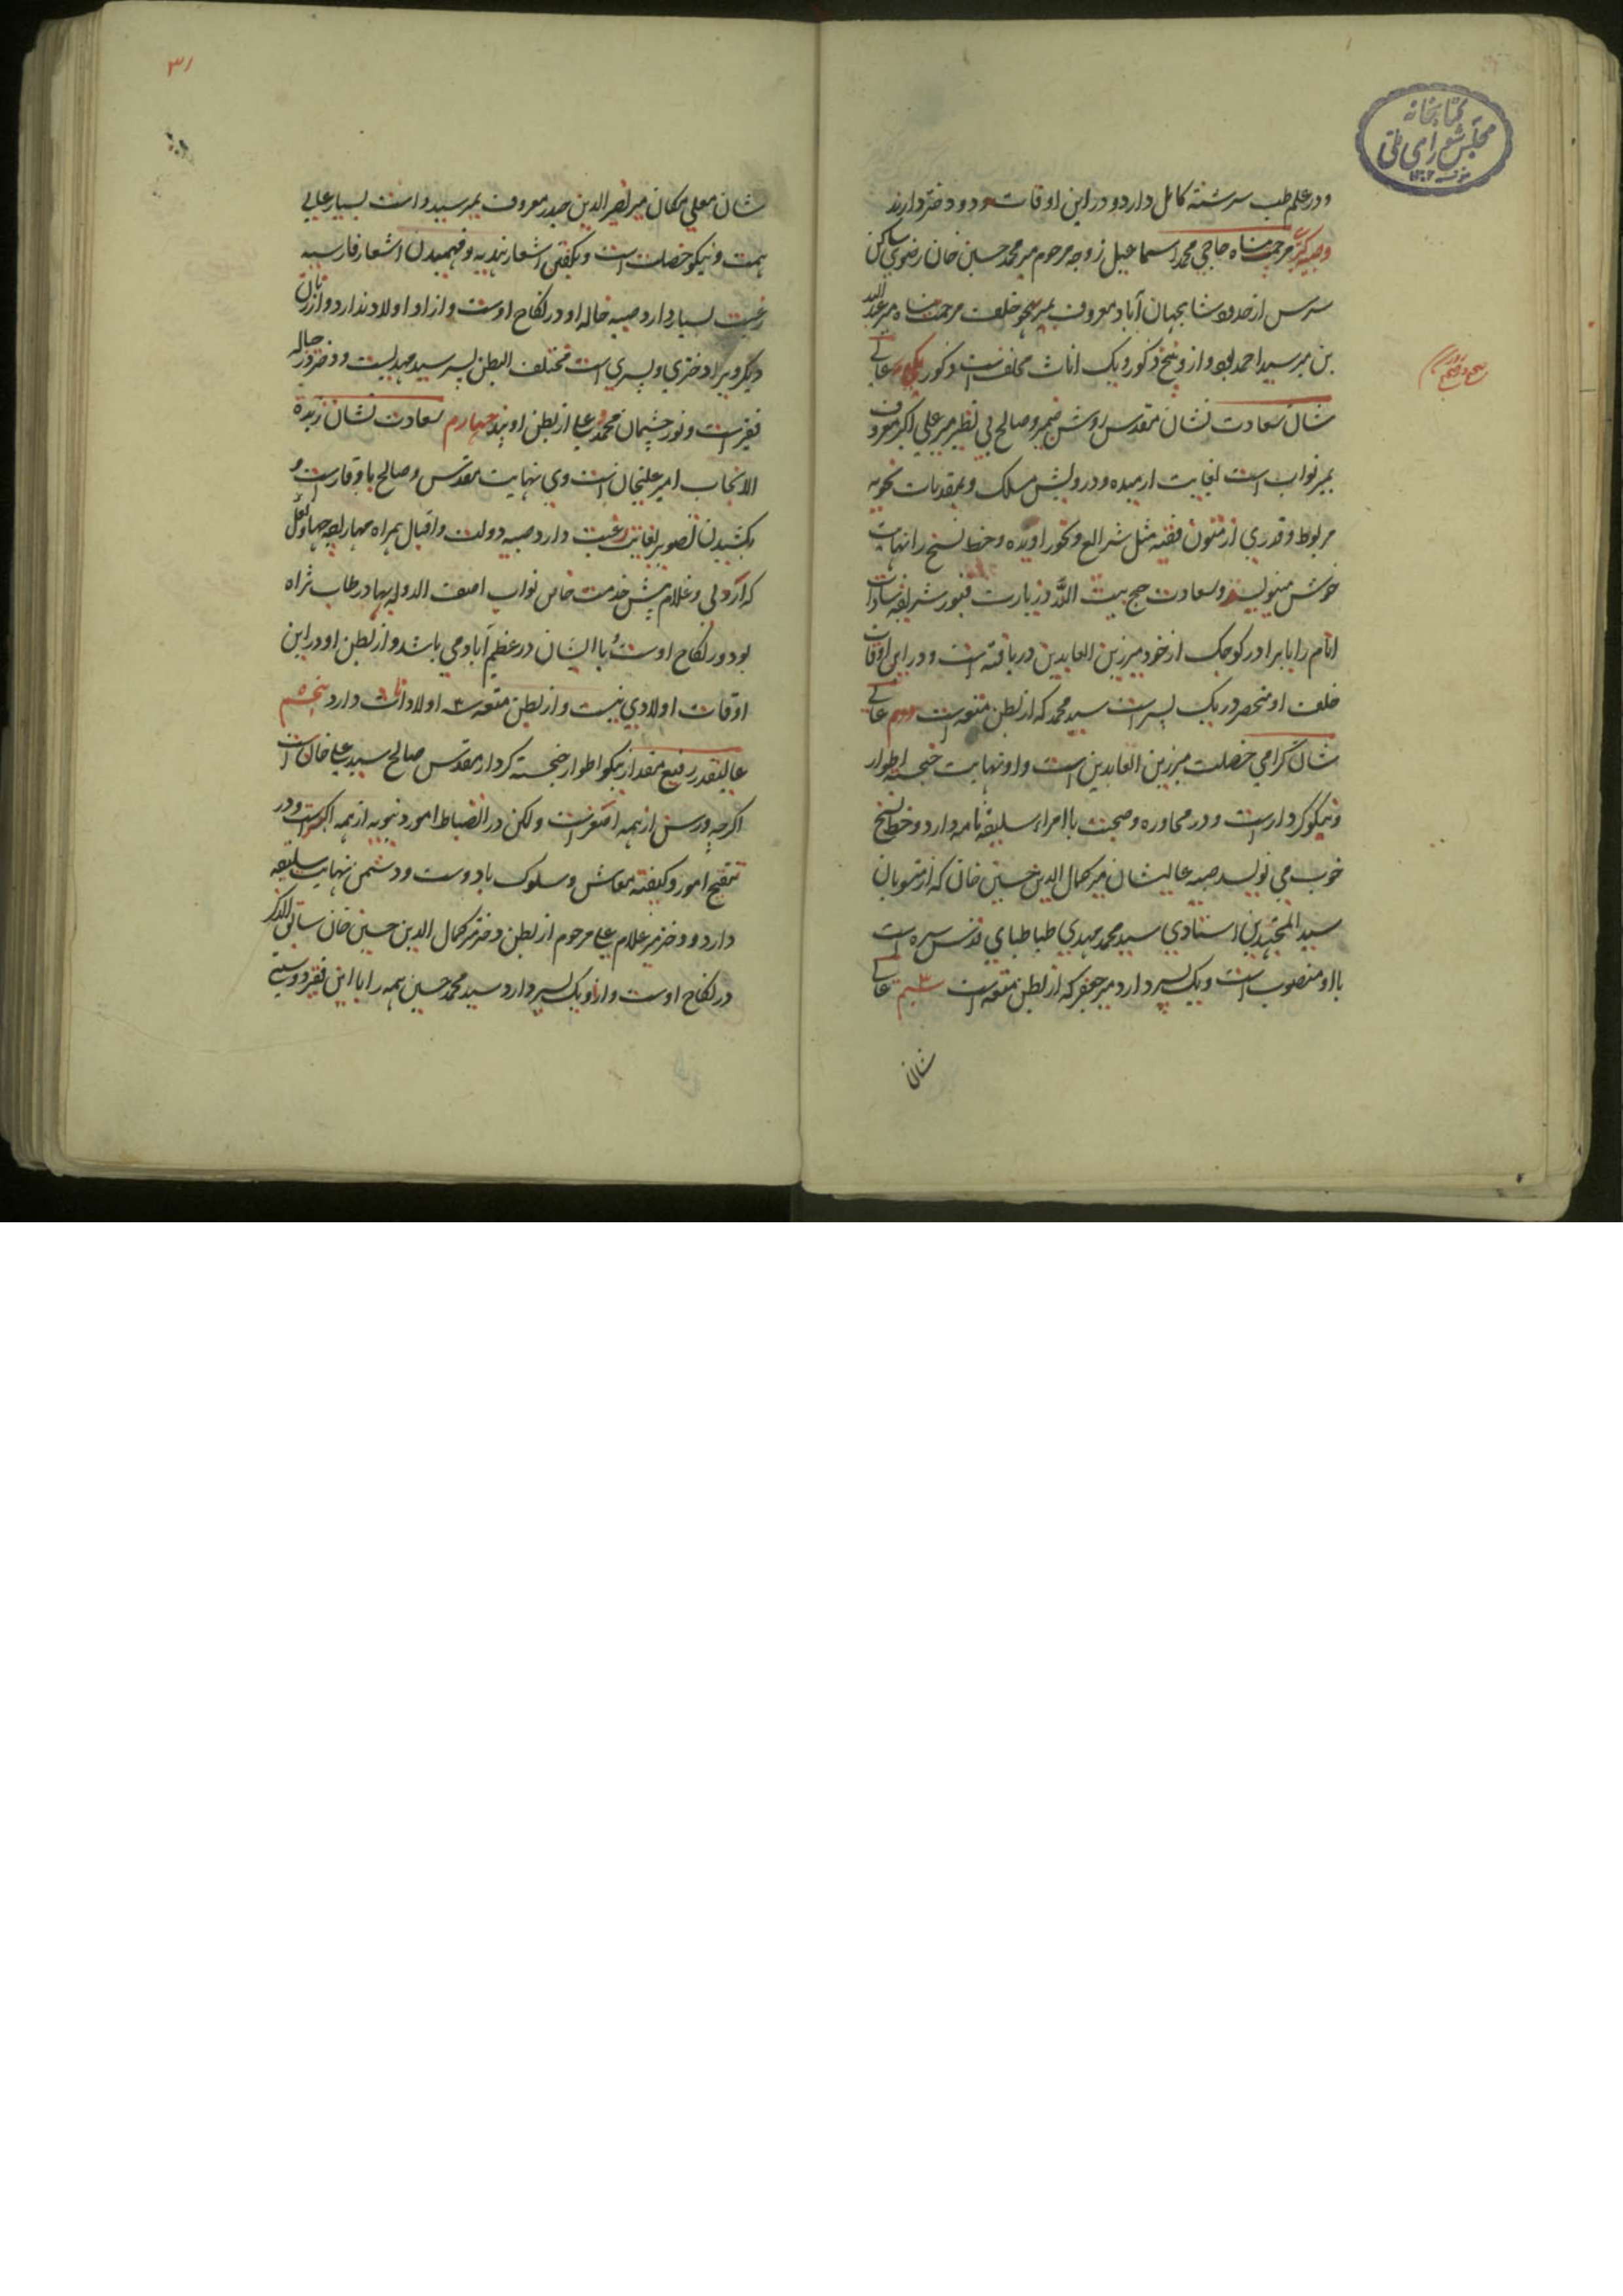 کتابخانه
مجلس شورای ملی
و در علم طب سررشته کامل دارد و در این اوقات دو دختر دارند
وصبیه کبری مرحمت پناه حاجی محمد اسماعیل زوجه مرحوم میر محمد حسین خان رضوی ساکن
سرس از حدود شاهجهان آباد معروف بمیر خلف مرحمت پناه میر عبد الله
بن میر سید احمد بود و از و پنج ذکور و یک اناث مخلف است ذکور یکی عالی
شان سعادت نشان مقدس روشن ضمیر و صالح بی نظیر میر علی اکبر معروف
بمیر نواب است بغایت ارمیده و درویش مسلک و بمقدمات نحویه
مربوط و قدری از متون فقه مثل شرایع و نحو او دیده و خط نسخ را نهایت
خوش مینویسد و سعادت حج بیت الله و زیارت قبور شریفه سادات
انام را با برادر کوچک از خود میر زین العابدین دریافته است و در این اوقات
خلف او منحصر در یک پسر است سید محمد که از بطن متعه است دویم عالی
شان گرامی خصلت میر زین العابدین است و او نهایت خجسته اطوار
و نیکو کردار است و در محاوره و صحبت با امراء سلیقه تامه دارد و خط نسخ
خوب می نویسد صبیه عالیشان میر کمال الدین حسین خان که از منسوبان
سید المجتهدین استادی سید محمد مهدی طباطبای قدس سره است
با او منصوب است و یک پسر دارد میر جعفر که از بطن متعه است سیم عالی
شان
۳۱
شان معلی مکان میر نصر الدین حیدر معروف بمیر سیدو است بسیار عالی
همت و نیکو خصلت است و بگفتن اشعار هندیه و فهمیدن اشعار فارسیه
رغبت بسیار دارد صبیه خاله او در نکاح اوست و از او اولاد ندارد و از زنان
دیگر ویرا دختری و پسری است مختلف البطن پسر سید مهدیست و دختر در حباله
فقیر است و نور چشمان محمد و علی از بطن اویند چهارم سعادت نشان زبده
الانجاب امیر علیخان است وی نهایت مقدس و صالح باوقار است و
بکشیدن تصویر بغایت رغبت دارد صبیه دولت و اقبال همراه مهاراجه جهاولعل
که اردلی و غلام پیش خدمت خاص نواب اصف الدوله بهادر طاب ثراه
بود در نکاح اوست و با ایشان در عظیم آباد می باشد و از بطن او در این
اوقات اولادی نیست و از بطن متعه سه اولاد اناث دارد پنجم
عالیقدر رفیع مقدار نیکو اطوار خجسته کردار مقدس صالح سید علی خان است
اگرچه در سن از همه اصغر است ولکن در انضباط امور دنیویه از همه اکبر است و در
تنقیح امور و کیفیه معاش و سلوک با دوست و دشمن نهایت سلیقه
دارد و دختر میر غلام علی مرحوم از بطن دختر میر کمال الدین حسین خان سابق الذکر
در نکاح اوست و از او یک پسر دارد سید محمد حسین همه را با این فقیر دوستی